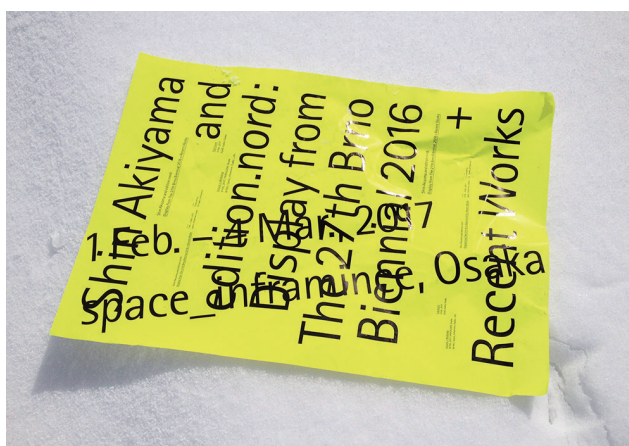 Shin Akiyama
and
edition.nord:
Display from
The 27th Brno
Biennial 2016
+
Recent Works
1 Feb. – 4 Mar. 2017
space_inframince, Osaka